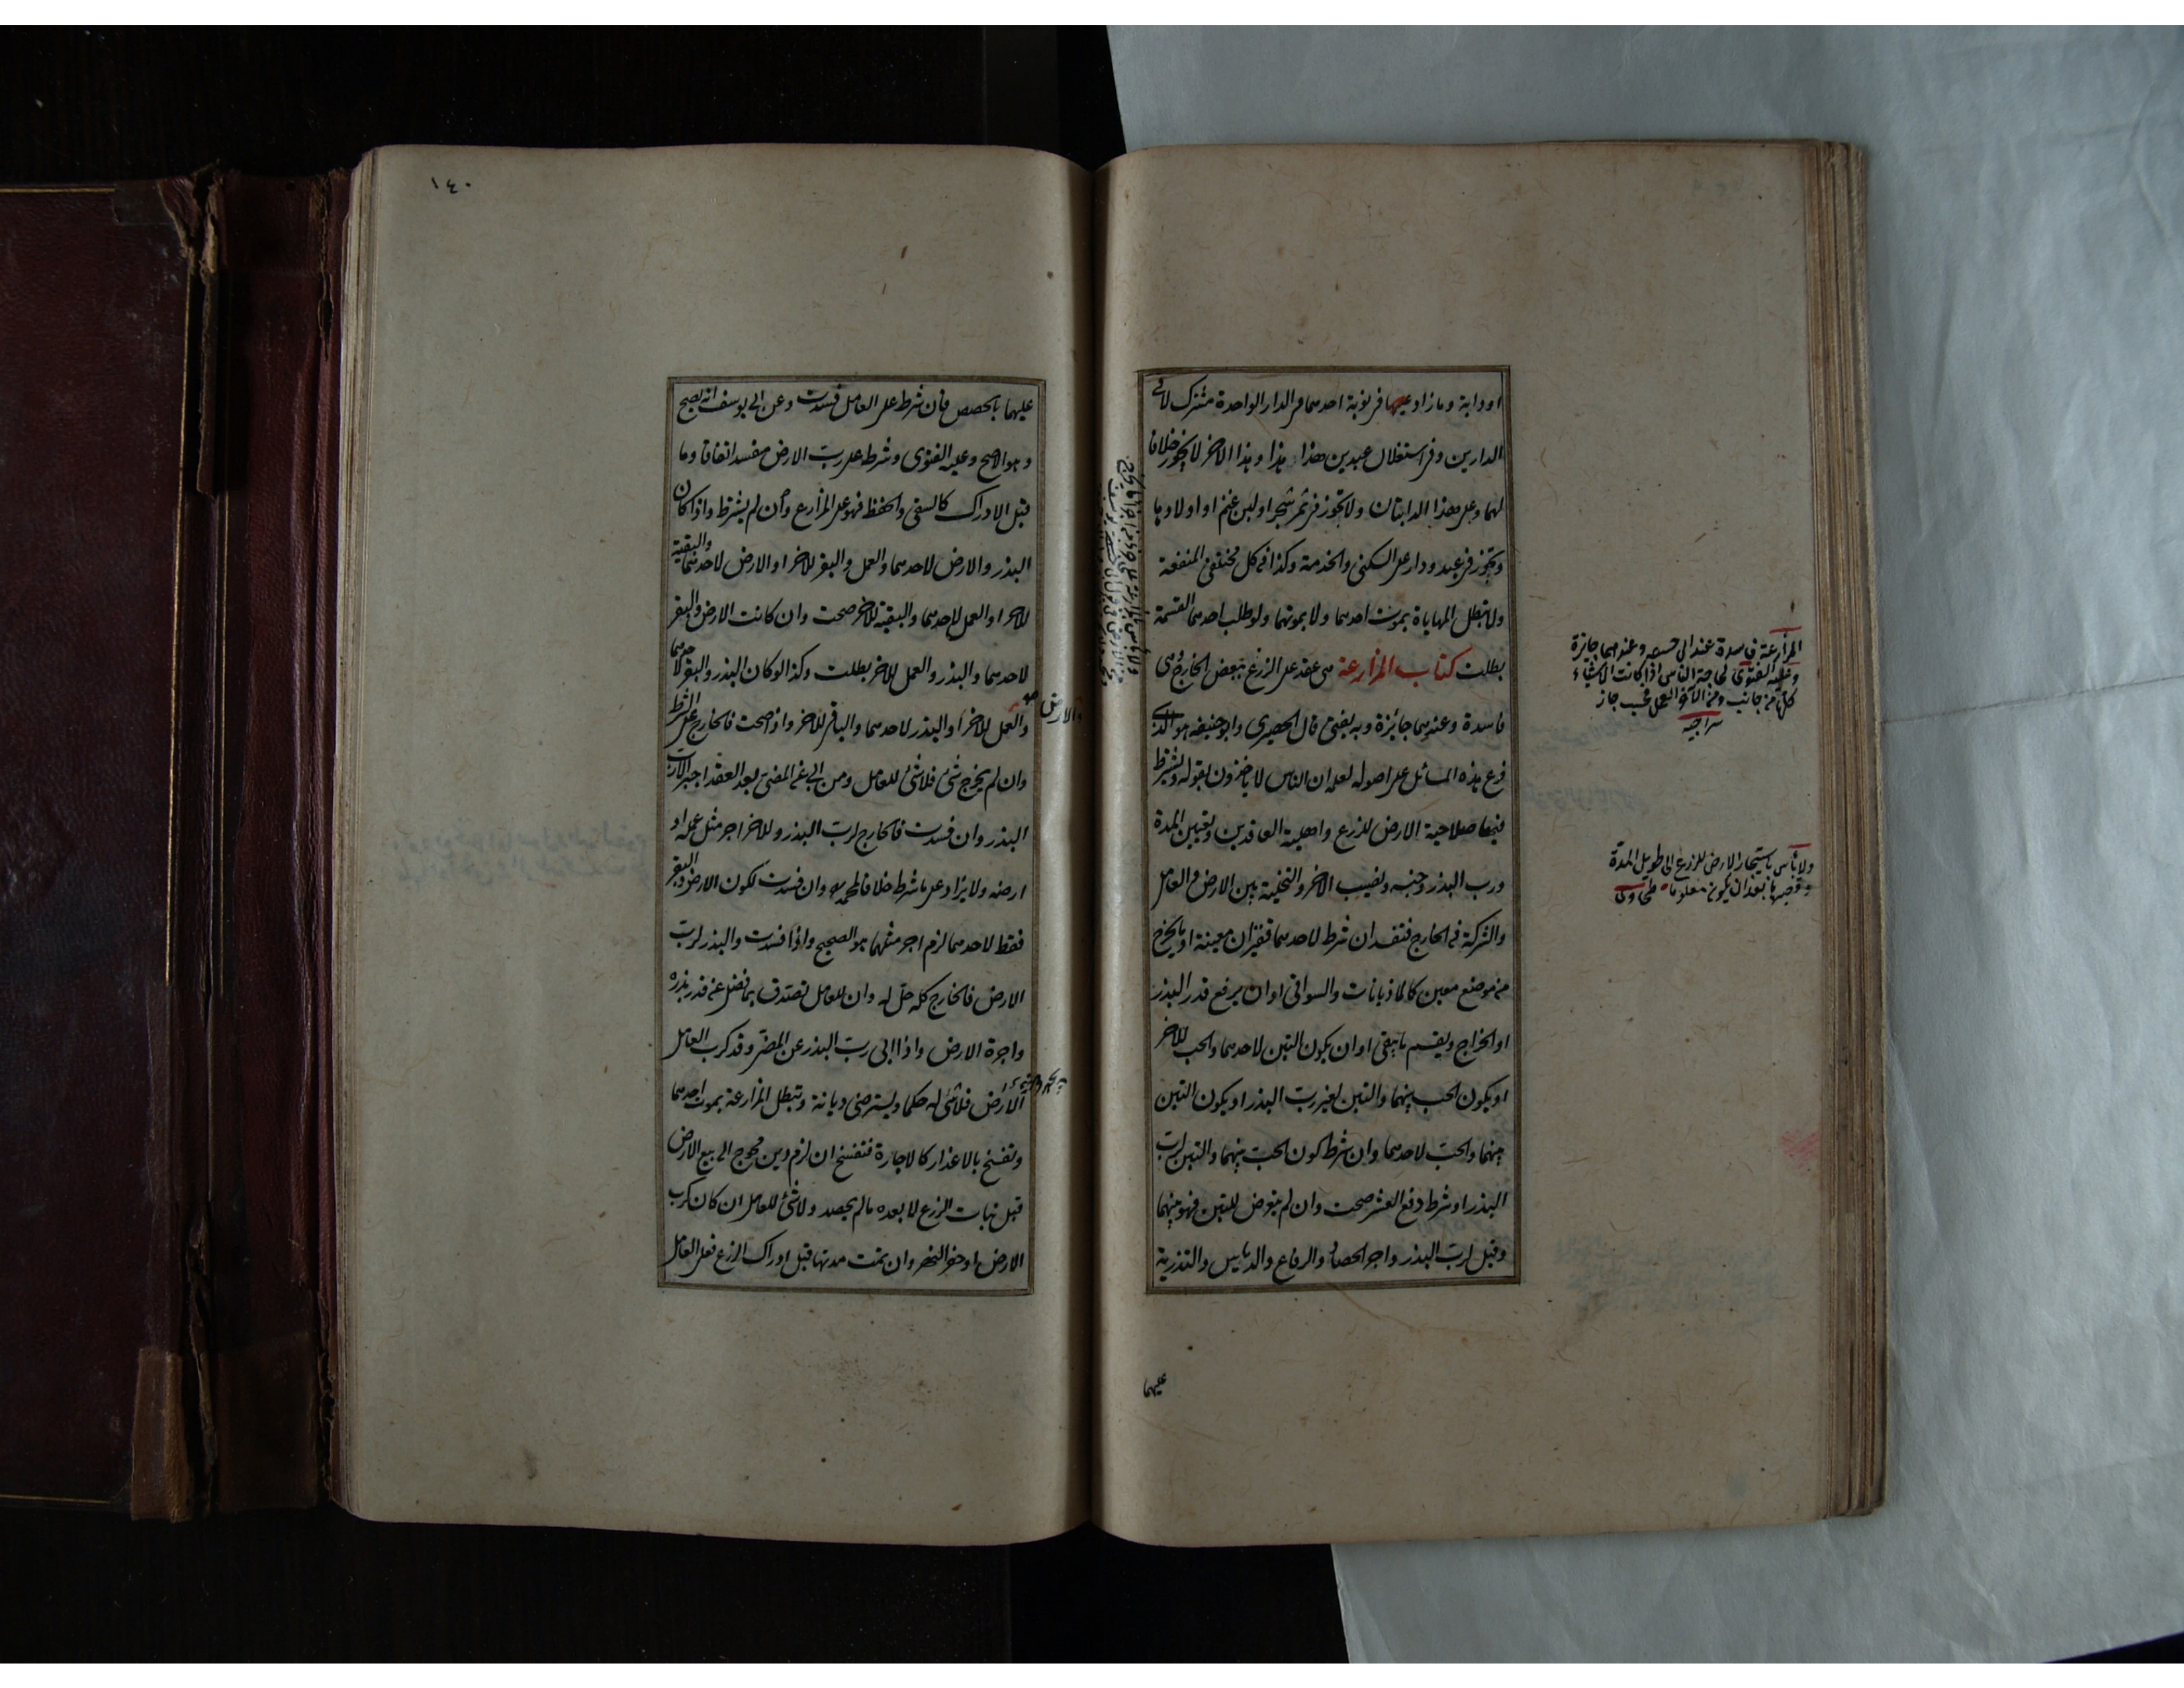 او دابة وما زاد عليها في نوبة احدهما في الدار الواحدة مشترك لا في
الدارين وفي استغلال عبدين هذا هذا وهذا الاخر لا يجوز خلافا
لهما وعلى هذا الدابتان ولا تجوز في ثمر شجر او لبن غنم او اولادها
وتجوز في عبد ودار على السكنى والخدمة وكذا في كل مختلفي المنفعة
ولا تبطل المهاياة بموت احدهما ولا بموتهما ولو طلب احدهما القسمة
بطلت كتاب المزارعة هى عقد على الزرع ببعض الخارج وهى
فاسدة وعندهما جائزة وبه يفتى قال الحصيرى وابو حنيفة هو الذى
فرع هذه المسائل على اصوله لعلمه ان الناس لا ياخذون بقوله ويشترط
فيها صلاحية الارض للزرع واهلية العاقدين وتعيين المدة
ورب البذر وجنسه ونصيب الاخر والتخلية بين الارض والعامل
والشركة في الخارج فتفسد ان شرط لاحدهما قفزان معينة او ما يخرج
من موضع معين كالماذيانات والسواقى او ان يرفع قدر البذر
او الخراج ويقسم ما يبقى او ان يكون التبن لاحدهما والحب للاخر
او يكون الحب بينهما والتبن لغير رب البذر او يكون التبن
بينهما والحب لاحدهما وان شرط كون الحب بينهما والتبن لرب
البذر او شرط دفع العشر صحت وان لم يتعرض للتبن فهو بينهما
وقيل لرب البذر واجر الحصاد والرفاع والدياس والتذرية
عليهما
المزارعة فاسدة عند ابى حنيفة وعندهما جائزة
وعليه الفتوى لحاجة الناس اذا كانت الاشياء
كلها من جانب ومن الآخر العمل فحسب جاز
سراجيه
ولا بأس باستيجار الارض للزرع الى طويل المدة
وقصيرها بعد ان يكون معلوما طحاوى
١٤٠
عليهما بالحصص فان شرط على العامل فسدت وعن ابى يوسف انه يصح
وهو الاصح وعليه الفتوى وشرطه على رب الارض مفسد اتفاقا وما
قبل الادراك كالسقى والحفظ فهو على المزارع وان لم يشترط واذا كان
البذر والارض لاحدهما والعمل والبقر للاخر او الارض لاحدهما والبقية
للاخر او العمل لاحدهما والبقية للاخر صحت وان كانت الارض والبقر
لاحدهما والبذر والعمل للاخر بطلت وكذا لو كان البذر والبقر لاحدهما
والارض صح
والعمل للاخر او البذر لاحدهما والباقى للاخر واذا صحت فالخارج على الشرط
وان لم يخرج شئ فلا شئ للعامل ومن ابى عن المضى بعد العقد اجبر الا رب
البذر وان فسدت فالخارج لرب البذر وللاخر اجر مثل عمله او
ارضه ولا يزاد على ما شرط خلافا لمحمد وان فسدت لكون الارض والبقر
فقط لاحدهما لزم اجر مثلهما هو الصحيح واذا فسدت والبذر لرب
الارض فالخارج كله حل له وان للعامل تصدق بما فضل عن قدر بذره
واجرة الارض واذا ابى رب البذر عن المضى وقد كرب العامل
الارض فلا شئ له حكما ويسترضى ديانة وتبطل المزارعة بموت احدهما
وتفسخ بالاعذار كالاجارة فتفسخ ان لزم دين محوج الى بيع الارض
قبل نبات الزرع لا بعده ما لم يحصد ولا شئ للعامل ان كان كرب
الارض او حفر النهر وان تمت مدتها قبل ادراك الزرع فعلى العامل